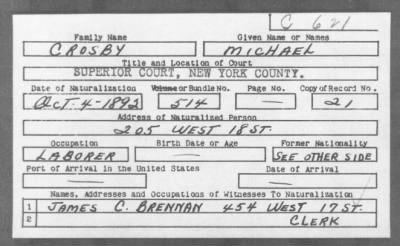 C 621
Family Name Given Name or Names
CROSBY MICHAEL
Title and Location of Court
SUPERIOR COURT, NEW YORK COUNTY.
Date of Naturalization Volume or Bundle No. Page No. Copy of Record No.
OCT. 4-1892 514 — 21
Address of Naturalized Person
205 WEST 18 ST.
Occupation Birth Date or Age Former Nationality
LABORER — SEE OTHER SIDE
Port of Arrival in the United States Date of Arrival
— —
Names, Addresses and Occupations of Witnesses To Naturalization
1 JAMES C. BRENNAN 454 WEST 17 ST.
2 CLERK